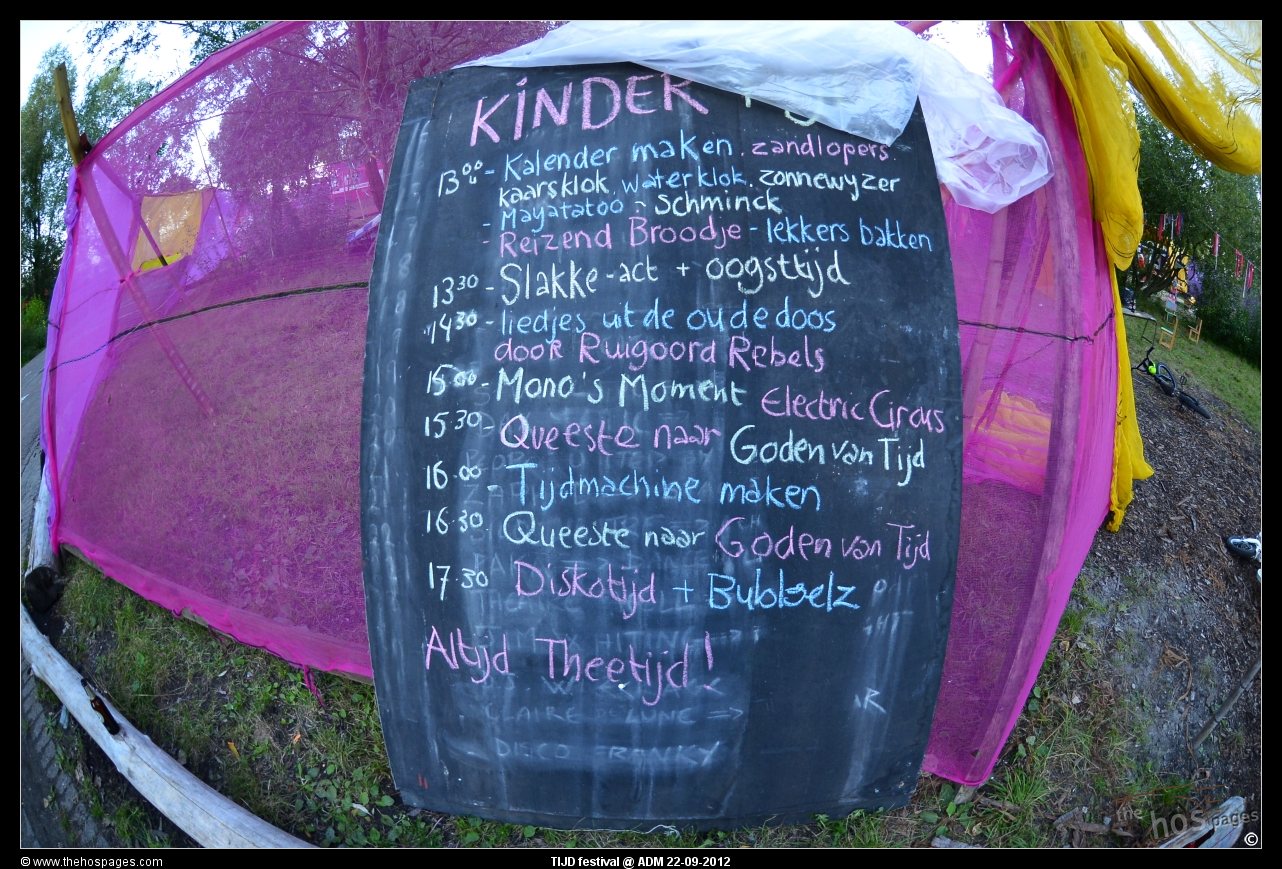 KINDER
13 00 - Kalender maken. zandlopers.
kaarsklok. waterklok. zonnewyzer
- Mayatatoo - Schminck
- Reizend Broodje - lekkers bakken
13 30 - Slakke-act + oogsttijd
14 30 - liedjes uit de oude doos
door Ruigoord Rebels
15 00 - Mono's Moment Electric Circus
15.30 - Queeste naar Goden van Tijd
16.00 - Tijdmachine maken
16.30. Queeste naar Goden van Tijd
17.30 Diskotijd + Bubbelz
Altijd Theetijd!
CLAIRE DE LUNE
DISCO FRANKY
the hos pages
©
© www.thehospages.com
TIJD festival @ ADM 22-09-2012